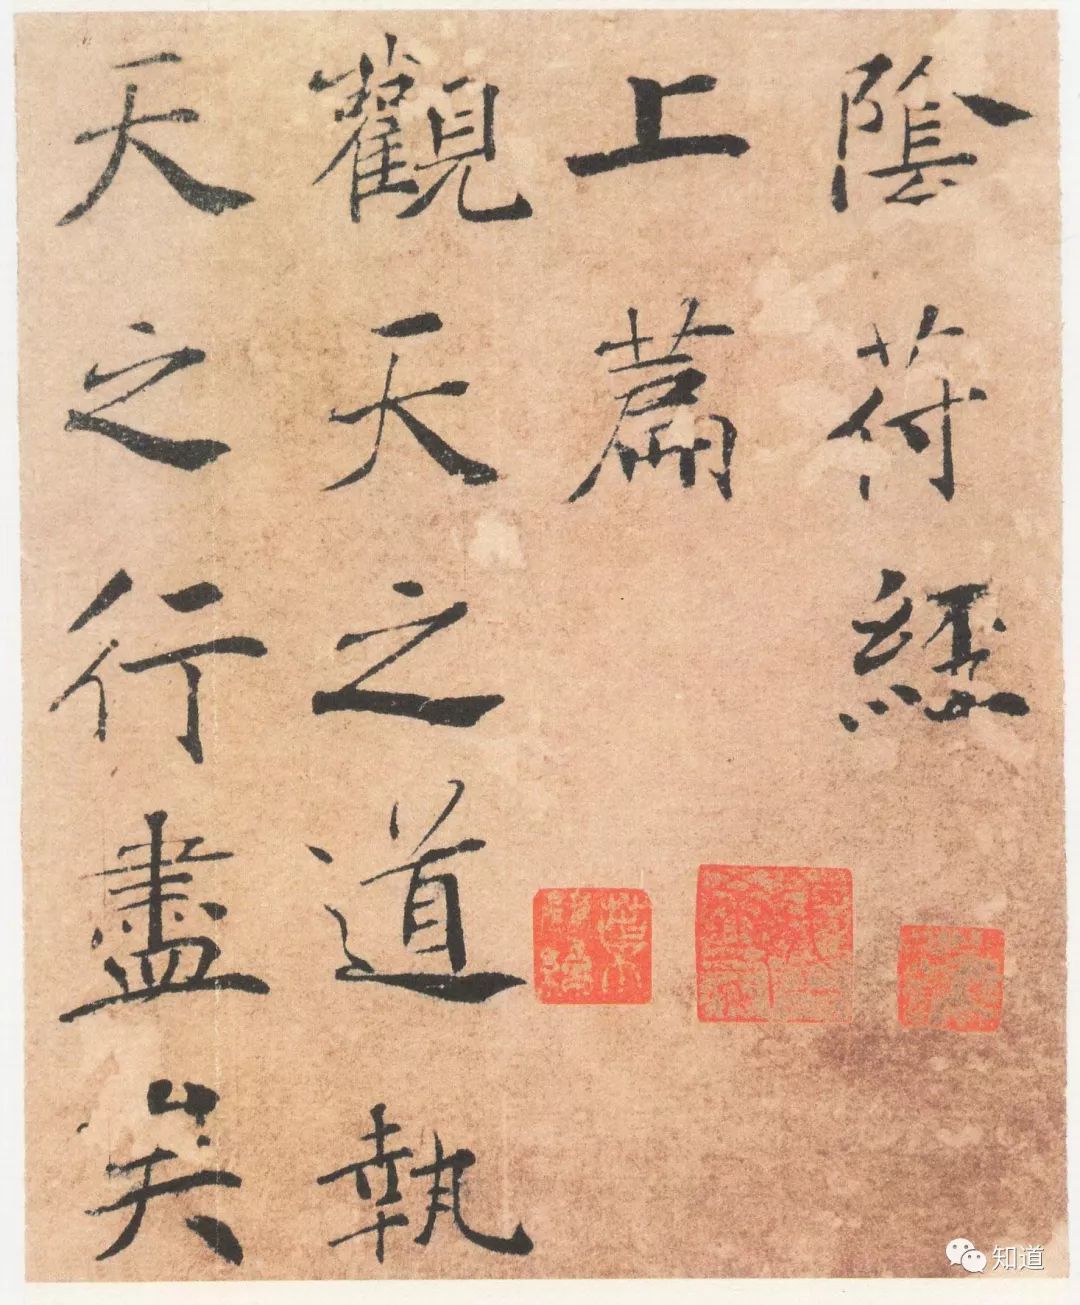 陰符經
上篇
觀天之道執
天之行盡矣
知道